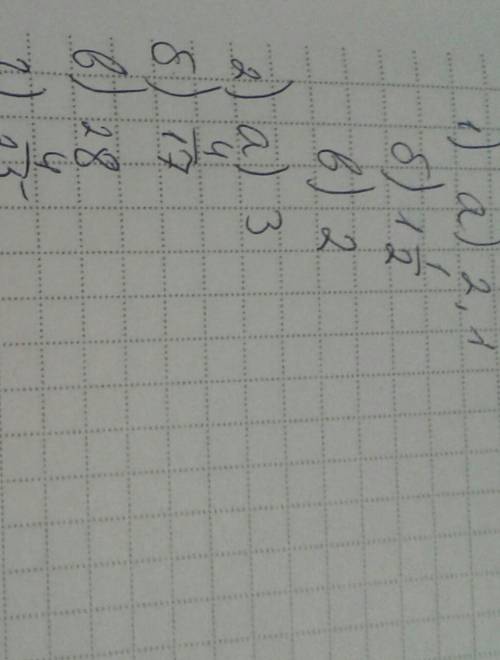 1) а) 2,1
б) 1 1/2
в) 2
2) а) 3
б) 4/17
в) 28
г) 4/25